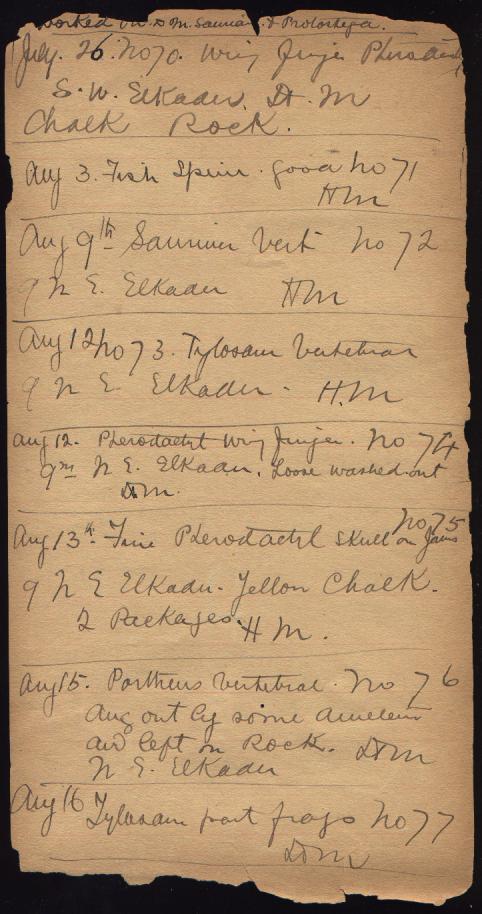 worked on D M. Saurian & Protostega.
July. 26. No 70. Wing Finger Pterodactyl
S. W. Elkader. D. M
Chalk Rock.
Aug 3. Fish Spine. good No 71
HM
Aug 9th Saurian Vert No 72
9 N E. Elkader HM
Aug 12 No 73. Tylosaur Vertebrae
9 N E Elkader. H.M
Aug 12. Pterodactyl Wing Finger. No 74
9m N E. Elkader. Loose washed out
DM.
No 75
Aug 13th. Fine Pterodactyl skull on Jaws
9 N E Elkader. Yellow Chalk.
2 Packages. H M.
Aug 15. Portheus Vertebrae. No 76
dug out by some amateur
and left on Rock. DM
N E. Elkader
Aug 16 Tylosaur part frags No 77
DM